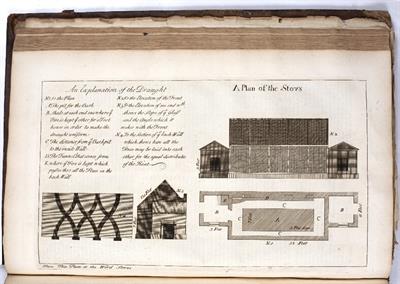 An Explanation of the Draught
A Plan of the Stoves
N.1 is the Plan
A The pit for the Bark
B. Sheds at each end in one where of
Fire is kept & other for a Tool
house in order to make the
draught uniform.
C. The distance from of Bark pit
to the inside Wall.
D. The Funnel that comes from
E. where of Fire is kept which
passes thro all the Flues in the
back Wall.
N.2 is the Elevation of the Front
N.3 is the Elevation of one end wch
shows the Slope of of Glass
and the Angle which it
makes with the Front
N.4 The Section of of back Wall
which shows how all the
Flues may be laid into each
other for the equal distribution
of the Heat
N.2
N.4
N.3
B
C
A
C
B
C
D
E
N.1
Place This Plate at the Word Stoves